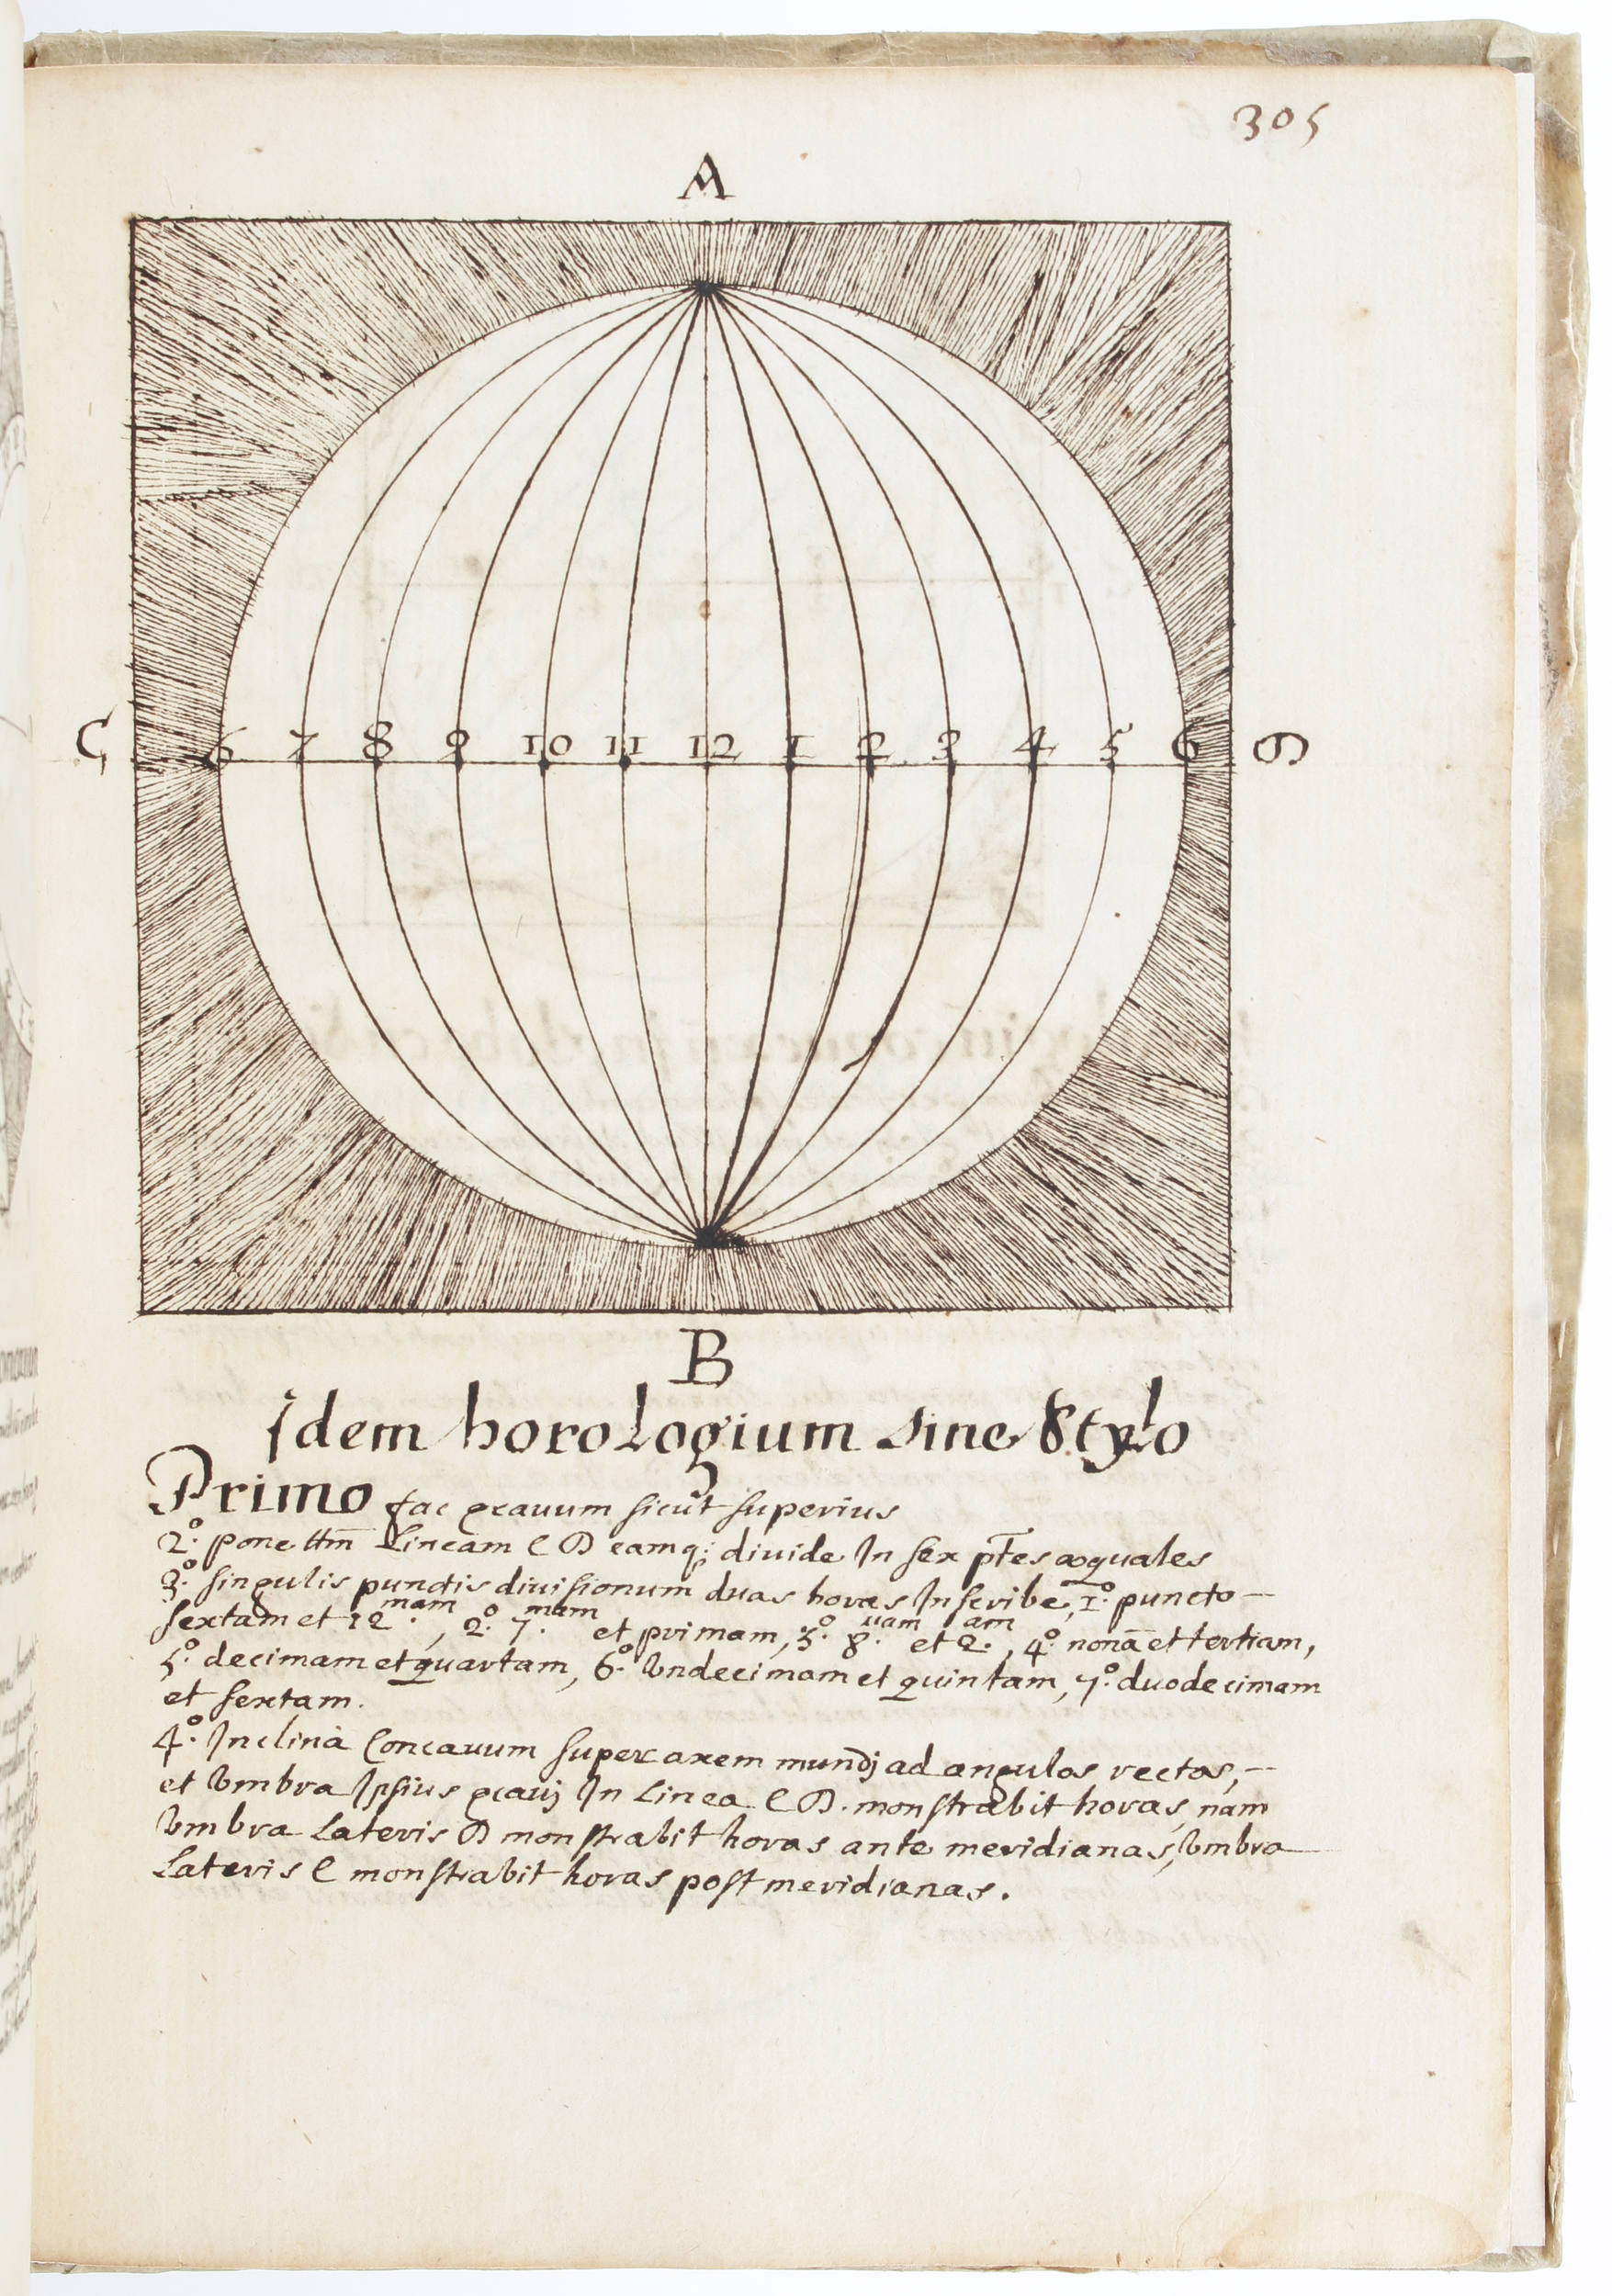 305
A
C 6 7 8 9 10 11 12 1 2 3 4 5 6 D
B
Idem horologium sine Stylo
Primo fac ꝯcauum sicut superius
2.º pone ttm̄ Lineam C D eamq; diuide In sex pt̄es æquales
3.º singulis punctis diuisionum duas horas Inscribe, 1.º puncto –
sextam et 12.mam, 2.º 7.mam et primam, 3.º 8.uam et 2.am, 4.º nonā et tertiam,
5.º decimam et quartam, 6.º Vndecimam et quintam, 7.º duodecimam
et sextam.
4.º Inclina Concauum super axem mundj ad angulos rectos, –
et Vmbra Ipsius ꝯcauj In Linea C D. monstrabit horas, nam
Vmbra Lateris D monstrabit horas ante meridianas, Vmbra
Lateris C monstrabit horas post meridianas.